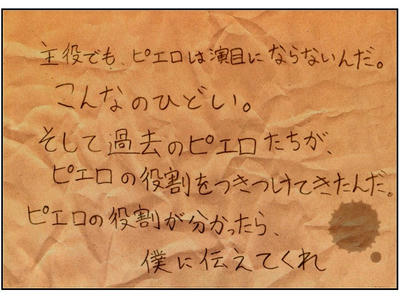 主役でも、ピエロは演目にならないんだ。
こんなのひどい。
そして過去のピエロたちが、
ピエロの役割をつきつけてきたんだ。
ピエロの役割が分かったら、
僕に伝えてくれ